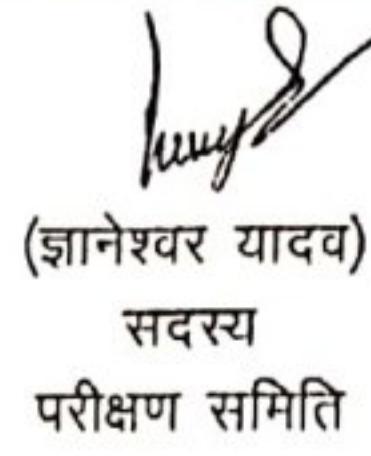 (ज्ञानेश्वर यादव)
सदस्य
परीक्षण समिति